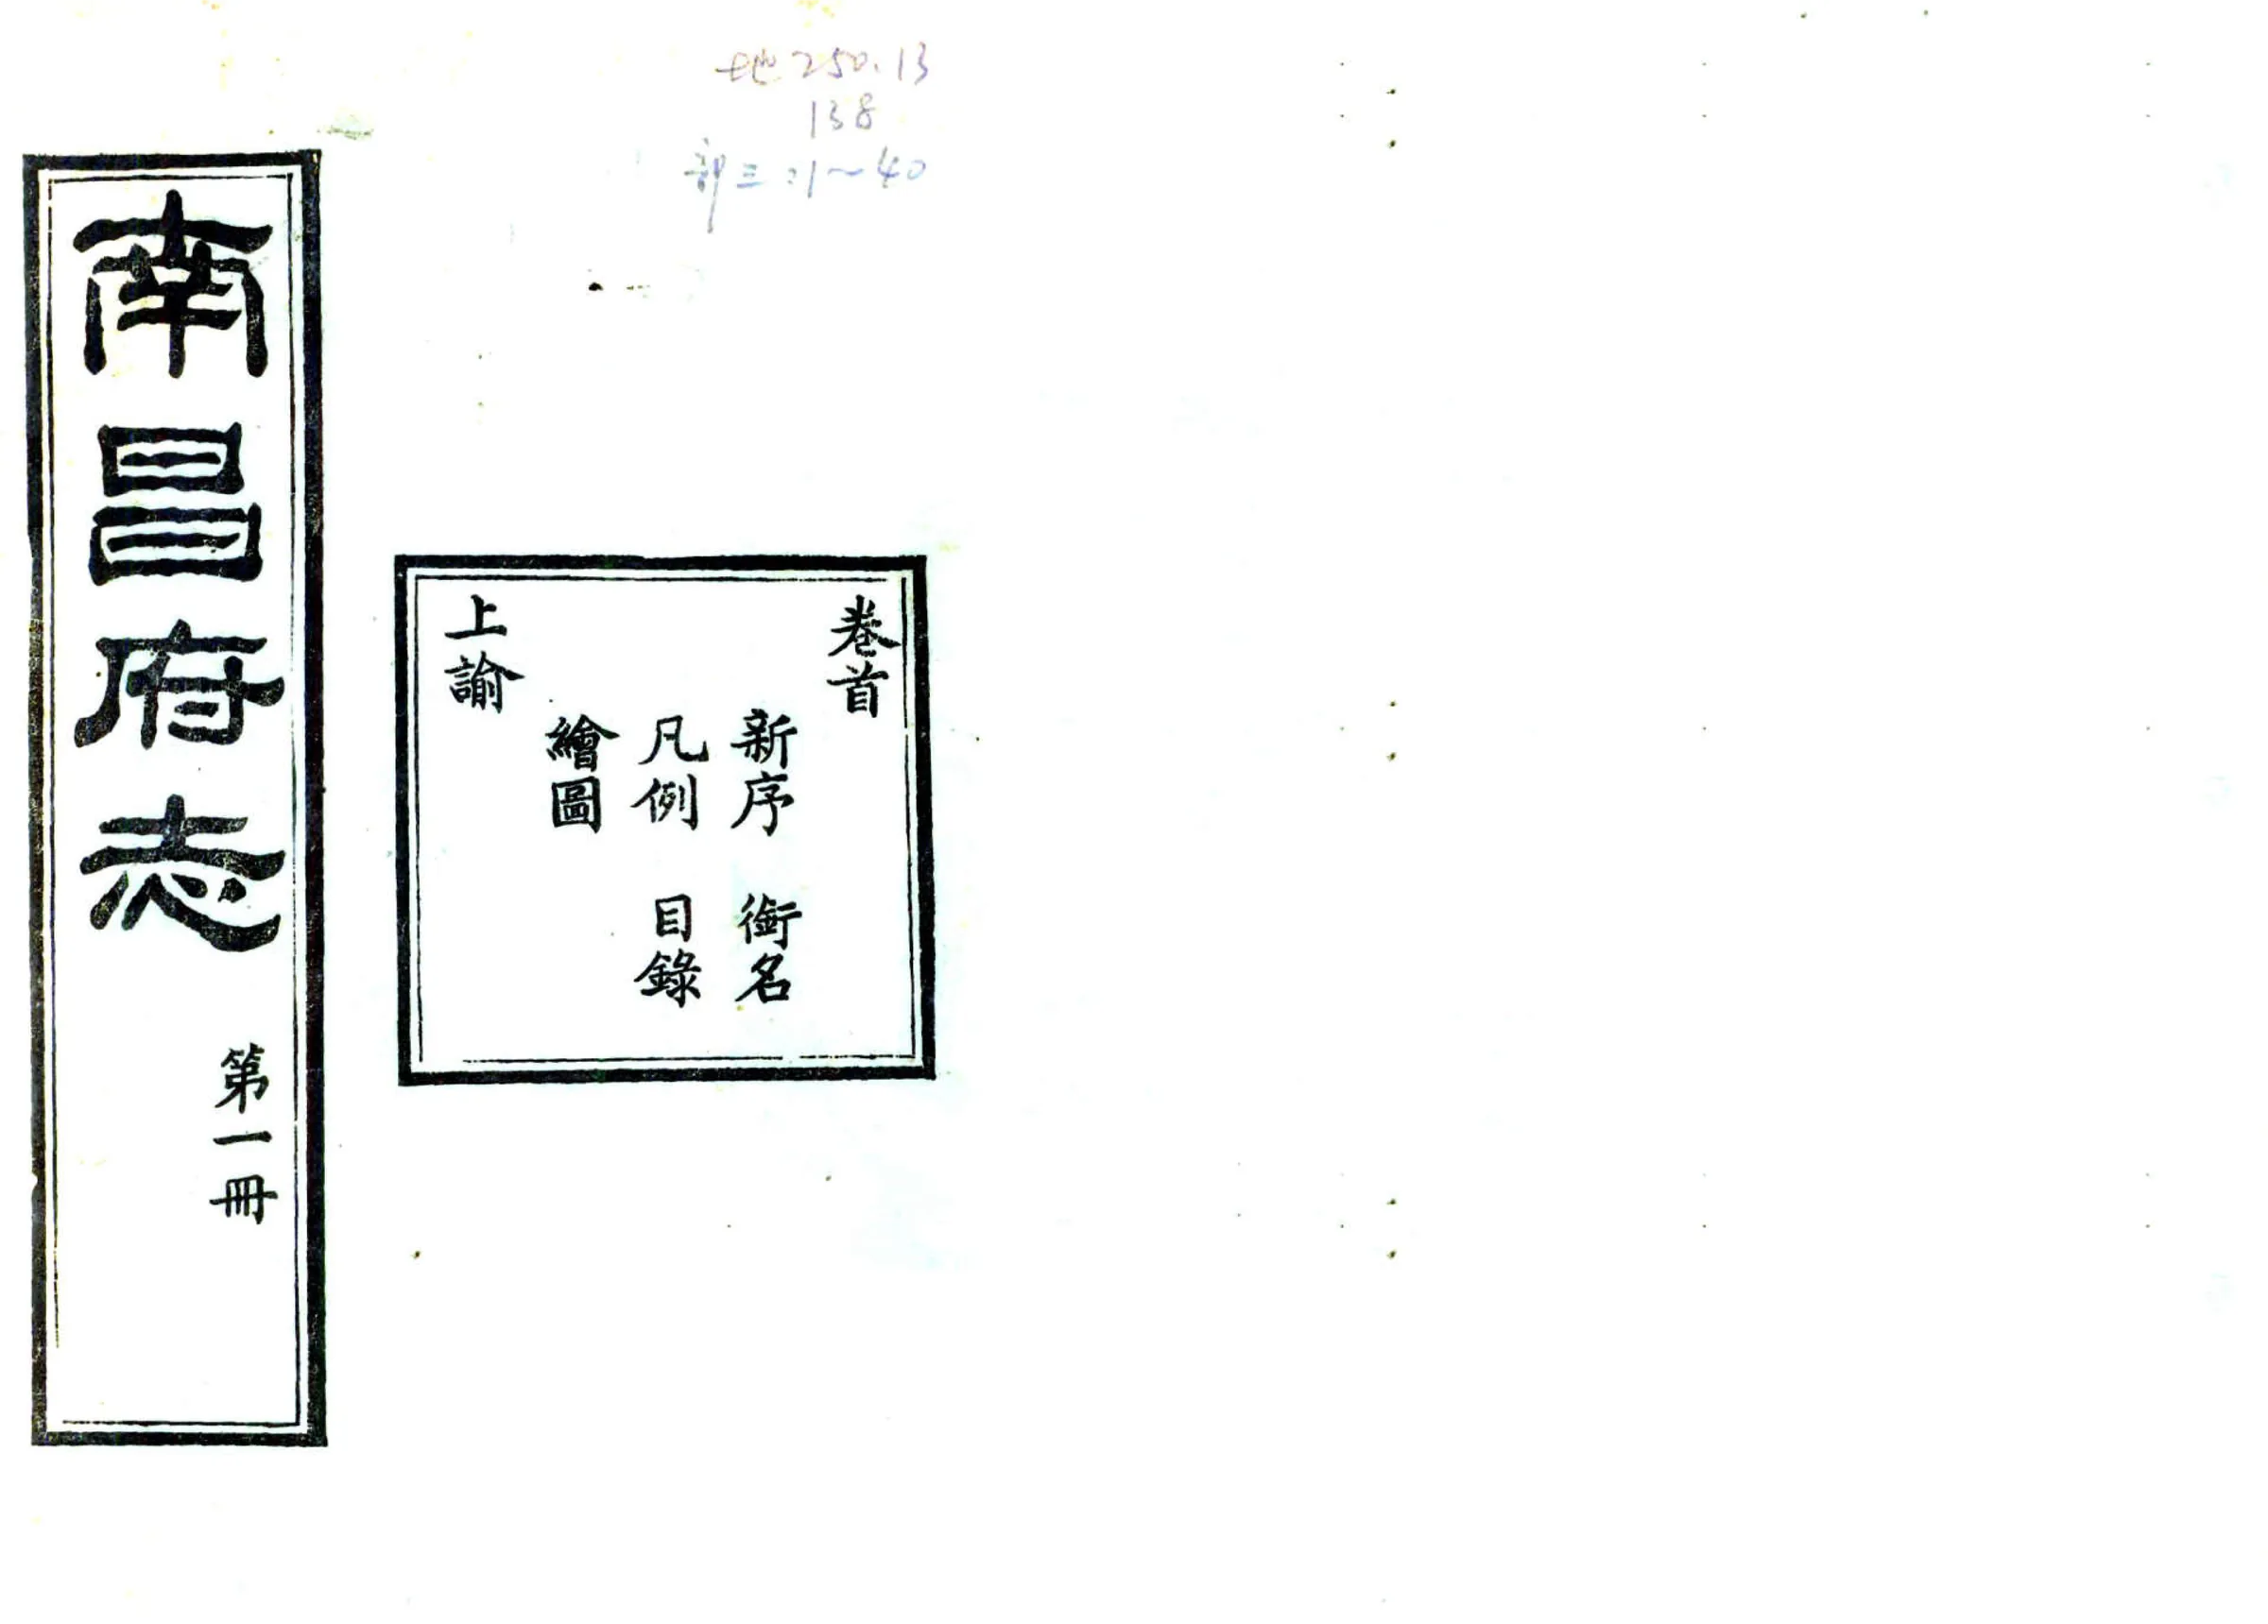 地250.13
138
部三:1~40
卷首
新序 銜名
凡例 目錄
繪圖
上諭
南昌府志 第一冊